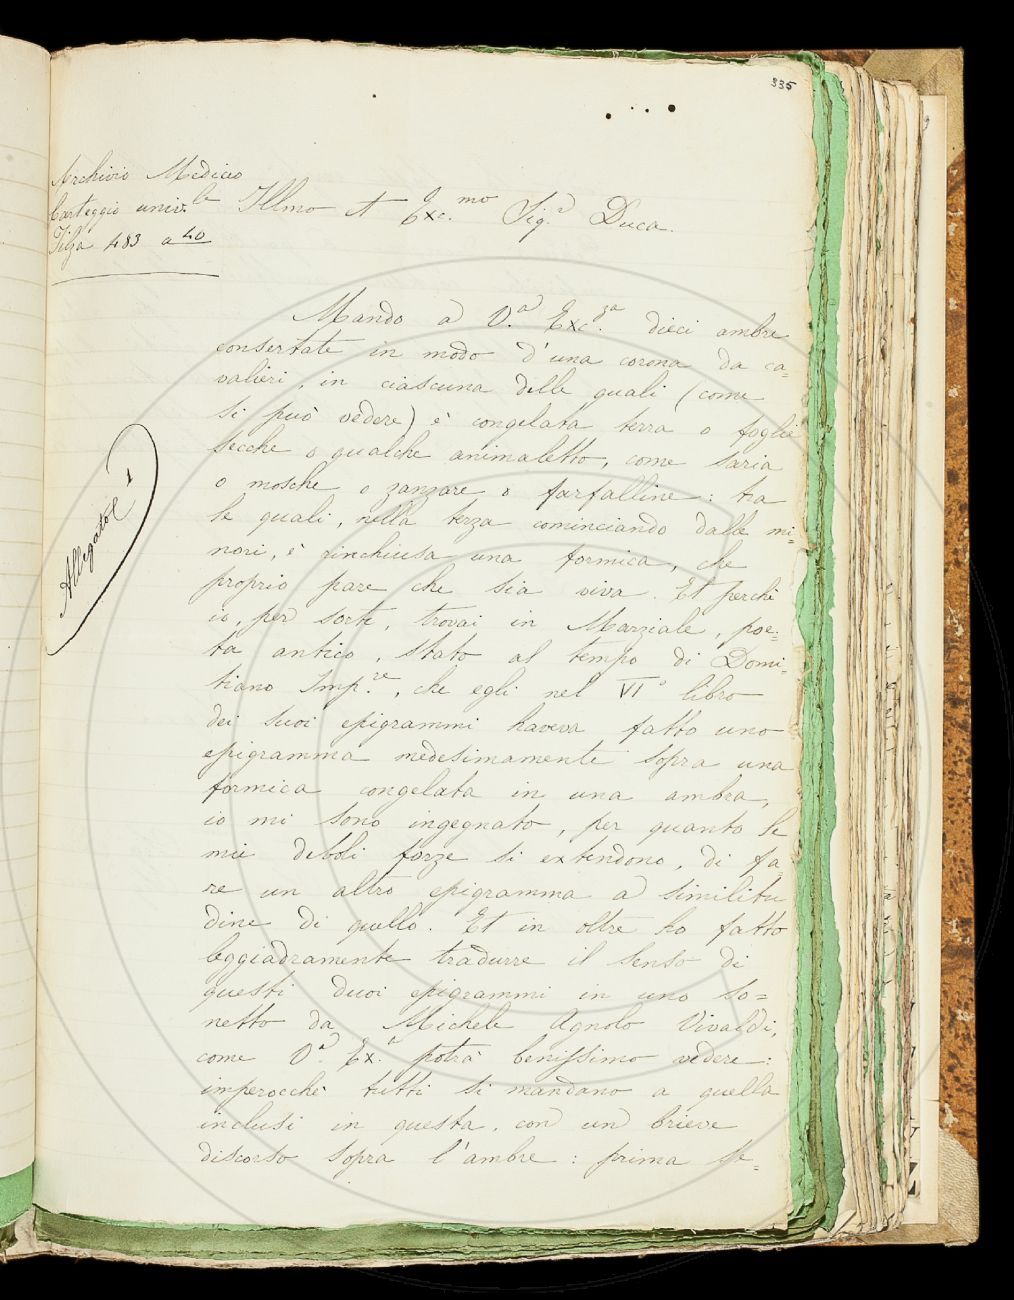 335
Archivio Mediceo
Carteggio univ.le
Filza 483 a 40
Illmo et Exc.mo Sig.r Duca.
Mando a V.a Exc.za dieci ambre
consertate in modo d'una corona da ca=
valieri, in ciascuna delle quali (come
si può vedere) è congelata terra o foglie
secche o qualche animaletto, come saria
o mosche o zanzare o farfalline: tra
le quali, nella terza cominciando dalle mi=
nori, è rinchiusa una formica, che
proprio pare che sia viva. Et perchè
io, per sorte, trovai in Marziale, poe=
ta antico, stato al tempo di Domi=
tiano Imp.re, che egli nel VI° libro
dei suoi epigrammi haveva fatto uno
epigramma medesimamente sopra una
formica congelata in una ambra,
io mi sono ingegnato, per quanto le
mie deboli forze si extendono, di fa=
re un altro epigramma a similitu
dine di quello. Et in oltre ho fatto
leggiadramente tradurre il senso di
questi duoi epigrammi in uno so=
netto da Michele Agnolo Vivaldi,
come V.a Ex.a potrà benissimo vedere:
imperocchè tutti si mandano a quella
inclusi in questa, con un brieve
discorso sopra l'ambre: prima se=
Allegato 1